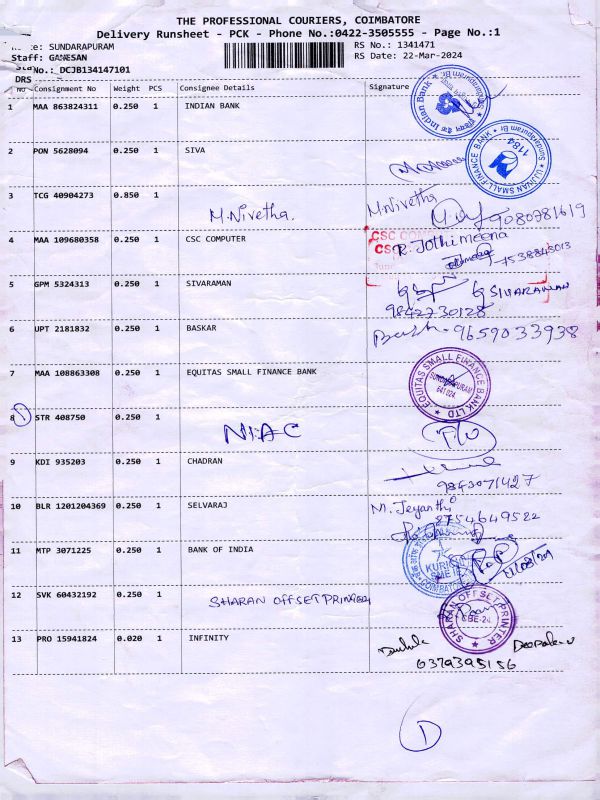 THE PROFESSIONAL COURIERS, COIMBATORE
Delivery Runsheet - PCK - Phone No.:0422-3505555 - Page No.:1
SUNDARAPURAM
RS No.: 1341471
Staff: GANESAN
RS Date: 22-Mar-2024
No.: DCJB134147101
DRS
No Consignment No Weight PCS Consignee Details Signature
1 MAA 863824311 0.250 1 INDIAN BANK
Indian Bank
2 PON 5628094 0.250 1 SIVA
UJJIVAN SMALL FINANCE BANK
1184
3 TCG 40904273 0.850 1 M.Nivetha. M.Nivetha 9080781619
4 MAA 109680358 0.250 1 CSC COMPUTER
CSC COM
R. Jothimeena
7538845013
5 GPM 5324313 0.250 1 SIVARAMAN
G SIVARAMAN
9842730128
6 UPT 2181832 0.250 1 BASKAR
9659033938
7 MAA 108863308 0.250 1 EQUITAS SMALL FINANCE BANK
EQUITAS SMALL FINANCE BANK LTD
SUNDARAPURAM
641 024
8 1 STR 408750 0.250 1 NIAC
9 KDI 935203 0.250 1 CHADRAN
9843071427
10 BLR 1201204369 0.250 1 SELVARAJ
M. Jeyanthi
8754649522
11 MTP 3071225 0.250 1 BANK OF INDIA
COIMBATORE
12 SVK 60432192 0.250 1 SHARAN OFFSET PRINTER
SHARAN OFFSET PRINTER
CBE-24
13 PRO 15941824 0.020 1 INFINITY
6379395156
1